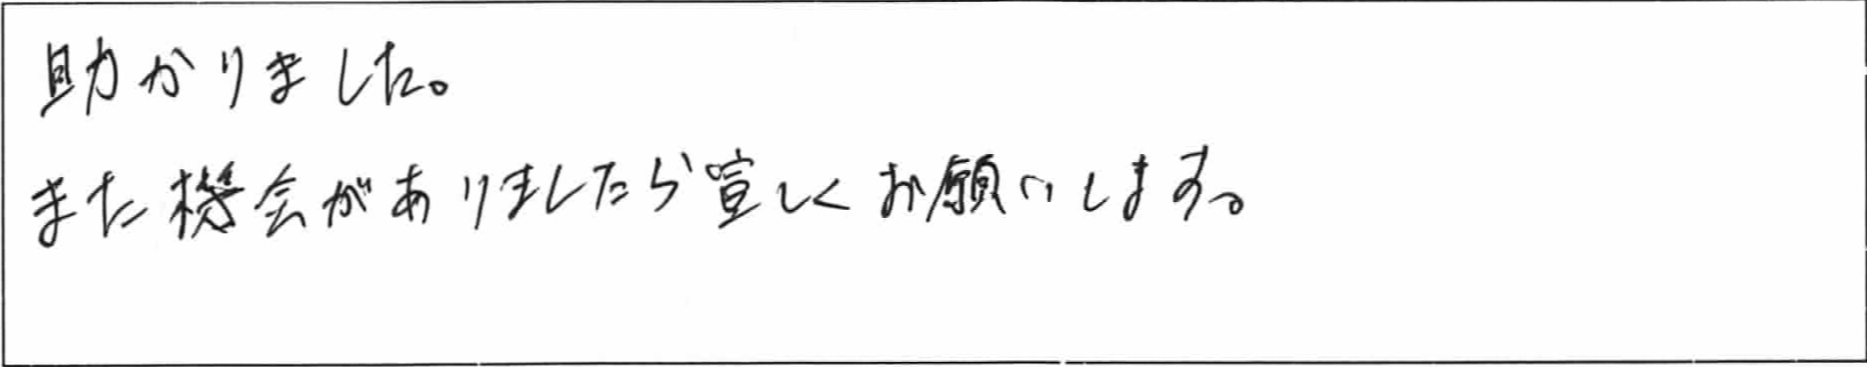 助かりました。
また機会がありましたら宜しくお願いします。